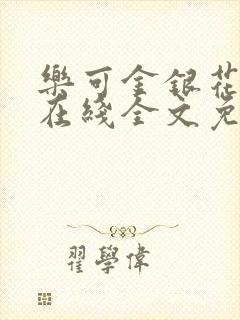 樂可金銀花
在綫全文免
翟學偉